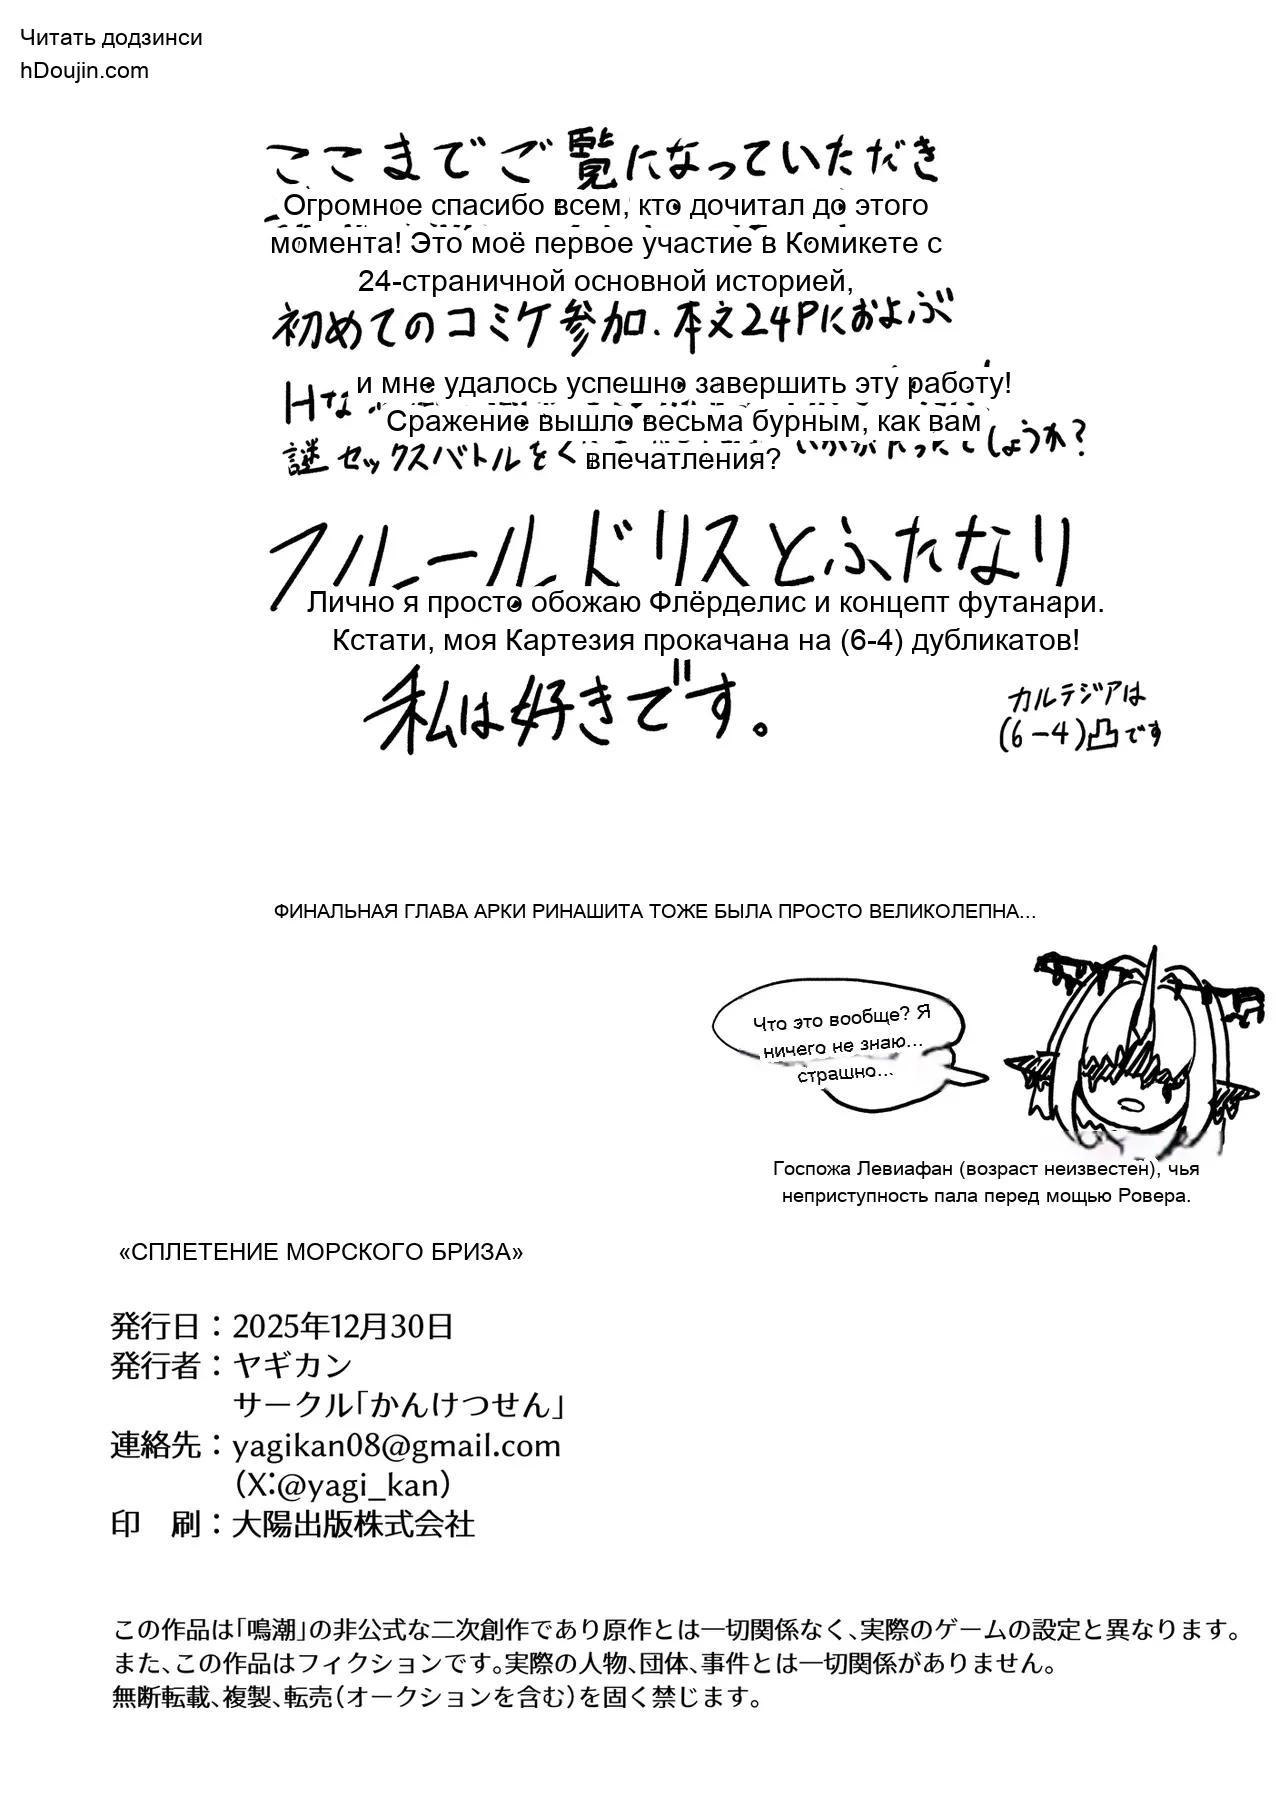 Читать додзинси
hDoujin.com
ここまでご覧になっていただき
Огромное спасибо всем, кто дочитал до этого
момента! Это моё первое участие в Комикете с
24-страничной основной историей,
初めてのコミケ参加、本文24Pにおよぶ
и мне удалось успешно завершить эту работу!
Hな
Сражение вышло весьма бурным, как вам
謎セックスバトルをく
впечатления?
しょうか?
フルールドリスとふたなり
Лично я просто обожаю Флёрделис и концепт футанари.
Кстати, моя Картезия прокачана на (6-4) дубликатов!
私は好きです。
カルテジアは
(6-4)凸です
ФИНАЛЬНАЯ ГЛАВА АРКИ РИНАШИТА ТОЖЕ БЫЛА ПРОСТО ВЕЛИКОЛЕПНА...
Что это вообще? Я
ничего не знаю...
страшно...
Госпожа Левиафан (возраст неизвестен), чья
неприступность пала перед мощью Ровера.
«СПЛЕТЕНИЕ МОРСКОГО БРИЗА»
発行日：2025年12月30日
発行者：ヤギカン
サークル「かんけつせん」
連絡先：yagikan08@gmail.com
（X:@yagi_kan）
印　刷：大陽出版株式会社
この作品は「鳴潮」の非公式な二次創作であり原作とは一切関係なく、実際のゲームの設定と異なります。
また、この作品はフィクションです。実際の人物、団体、事件とは一切関係がありません。
無断転載、複製、転売（オークションを含む）を固く禁じます。